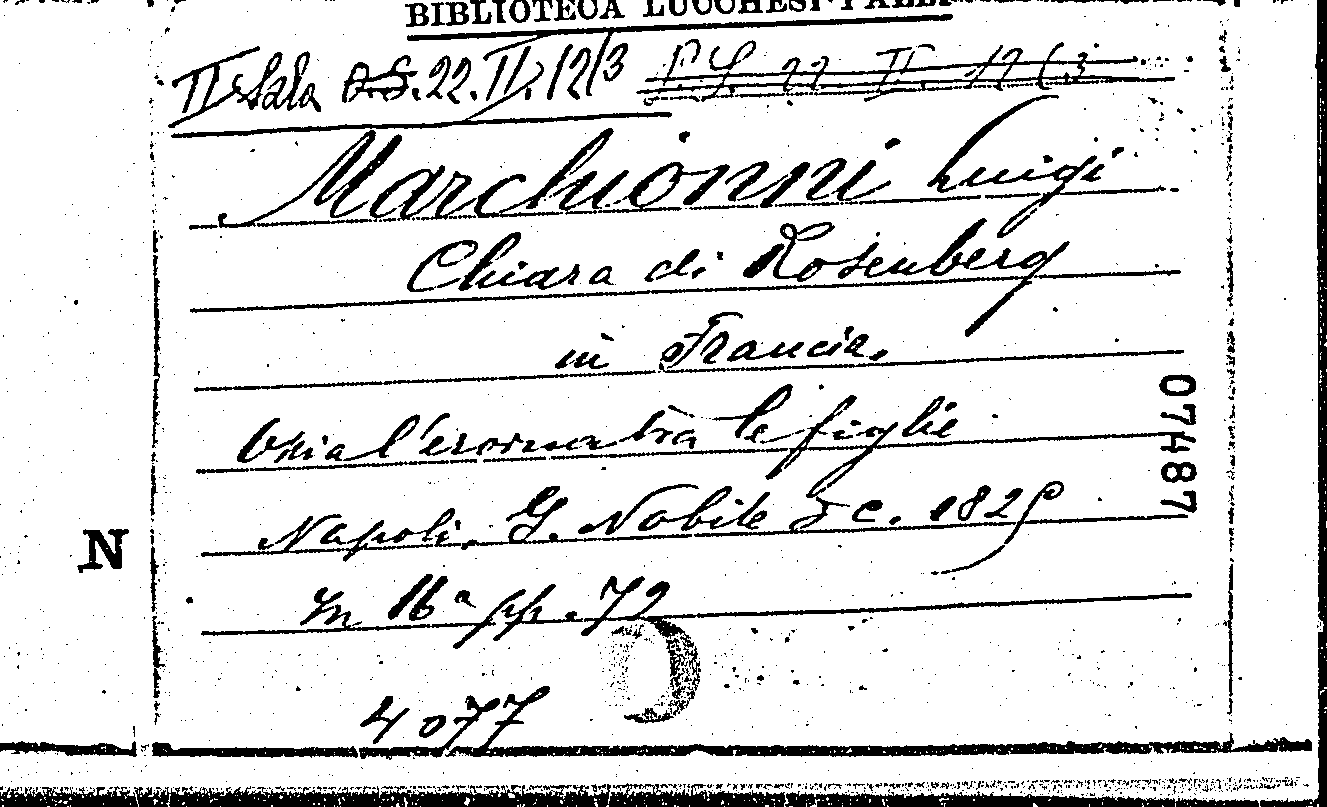 BIBLIOTECA LUCCHESI-PALLI
II Sala O.S. 22. II. 12/3 F. S. 22 II. 12 (3
Marchionni Luigi
Chiara di Rosenberg
in Francia.
Ossia l'eroina tra le figlie
Napoli. G. Nobile &c. 182
In 16ª pp. 72
4077
07487
N